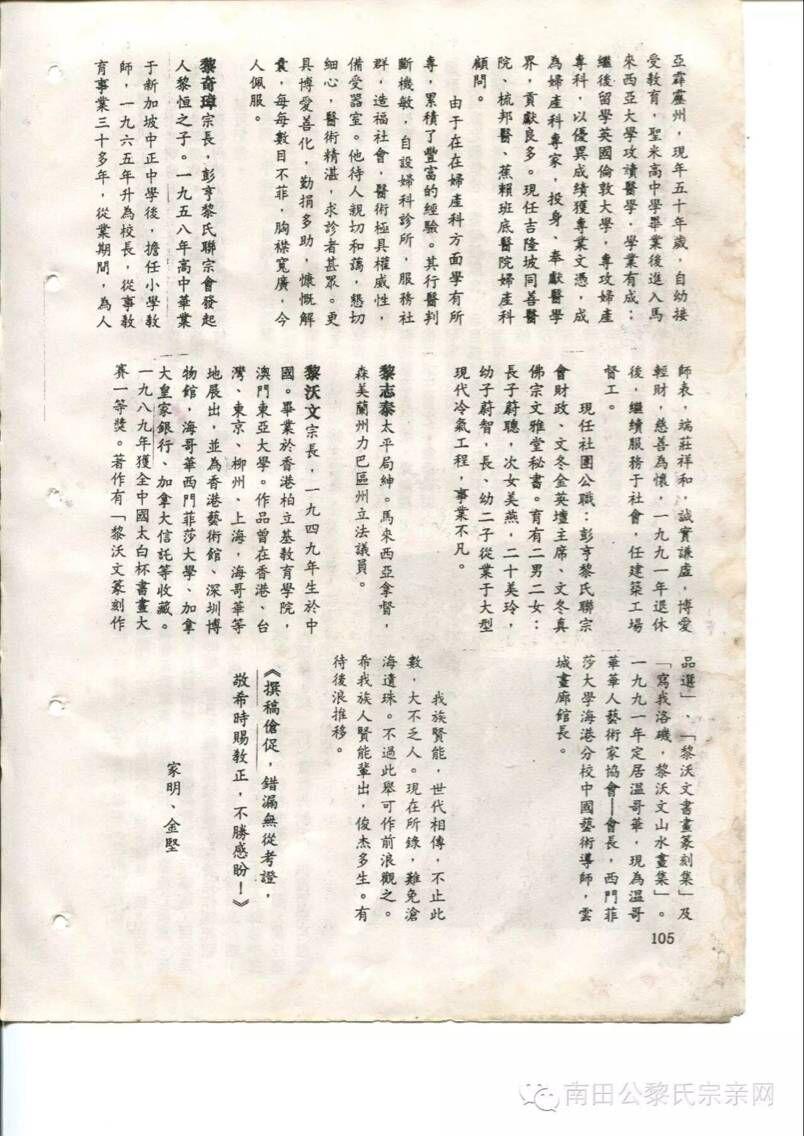 亞霹靂州，現年五十年歲，自幼接
受教育，聖米高中學畢業後進入馬
來西亞大學攻讀醫學，學業有成；
繼後留學英國倫敦大學，專攻婦產
專科，以優異成績獲專業文憑，成
為婦產科專家，投身、奉獻醫學
界，貢獻良多。現任吉隆坡同善醫
院、梳邦醫、蕉賴班底醫院婦產科
顧問。
由于在在婦產科方面學有所
專，累積了豐富的經驗。其行醫判
斷機敏，自設婦科診所，服務社
群，造福社會，醫術極具權威性，
備受器室。他待人親切和藹，懇切
細心，醫術精湛，求診者甚眾。更
具博愛善化，勤捐多助，慷慨解
囊，每每數目不菲，胸襟寬廣，令
人佩服。
黎奇瑋宗長，彭亨黎氏聯宗會發起
人黎恒之子。一九五八年高中華業
于新加坡中正中學後，擔任小學教
師，一九六五年升為校長，從事教
育事業三十多年，從業期間，為人
師表，端莊祥和，誠實謙虛，博愛
輕財，慈善為懷，一九九一年退休
後，繼續服務于社會，任建築工場
督工。
現任社團公職：彭亨黎氏聯宗
會財政、文冬金英壇主席、文冬真
佛宗文雅堂秘書。育有二男二女：
長子蔚聰，次女美燕，二十美玲，
幼子蔚智，長、幼二子從業于大型
現代冷氣工程，事業不凡。
黎志泰太平局紳。馬來西亞拿督，
森美蘭州力巴區州立法議員。
黎沃文宗長，一九四九年生於中
國。畢業於香港柏立基教育學院，
澳門東亞大學。作品曾在香港、台
灣、東京、柳州、上海，海哥華等
地展出，並為香港藝術館、深圳博
物館，海哥華西門菲莎大學、加拿
大皇家銀行、加拿大信託等收藏。
一九八九年獲全中國太白杯書畫大
賽一等獎。著作有「黎沃文篆刻作
品選」、「黎沃文書畫篆刻集」及
「寫我洛磯，黎沃文山水畫集」。
一九九一年定居溫哥華，現為溫哥
華華人藝術家協會—會長，西門菲
莎大學海港分校中國藝術導師，雲
城畫廊館長。
我族賢能，世代相傳，不止此
數，大不乏人。現在所錄，難免滄
海遺珠。不過此舉可作前浪觀之。
希我族人賢能輩出，俊杰多生。有
待後浪推移。
《撰稿傖促，錯漏無從考證，
敬希時賜教正，不勝感盼！》
家明、金堅
105
南田公黎氏宗亲网